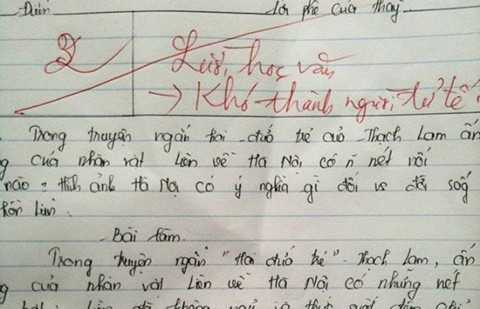 Điểm Lời phê của thầy
2 Lười học văn
→ Khó thành người tử tế
Trong truyện ngắn hai đứa trẻ của Thạch Lam ấn
g của nhân vật Liên về Hà Nội có n nét nổi
nào? Hình ảnh Hà Nội có ý nghĩa gì đối vs đời sốg
hồn Liên.
Bài làm
Trong truyện ngắn "Hai đứa trẻ" Thạch Lam, ấn
g của nhân vật Liên về Hà Nội có những nét